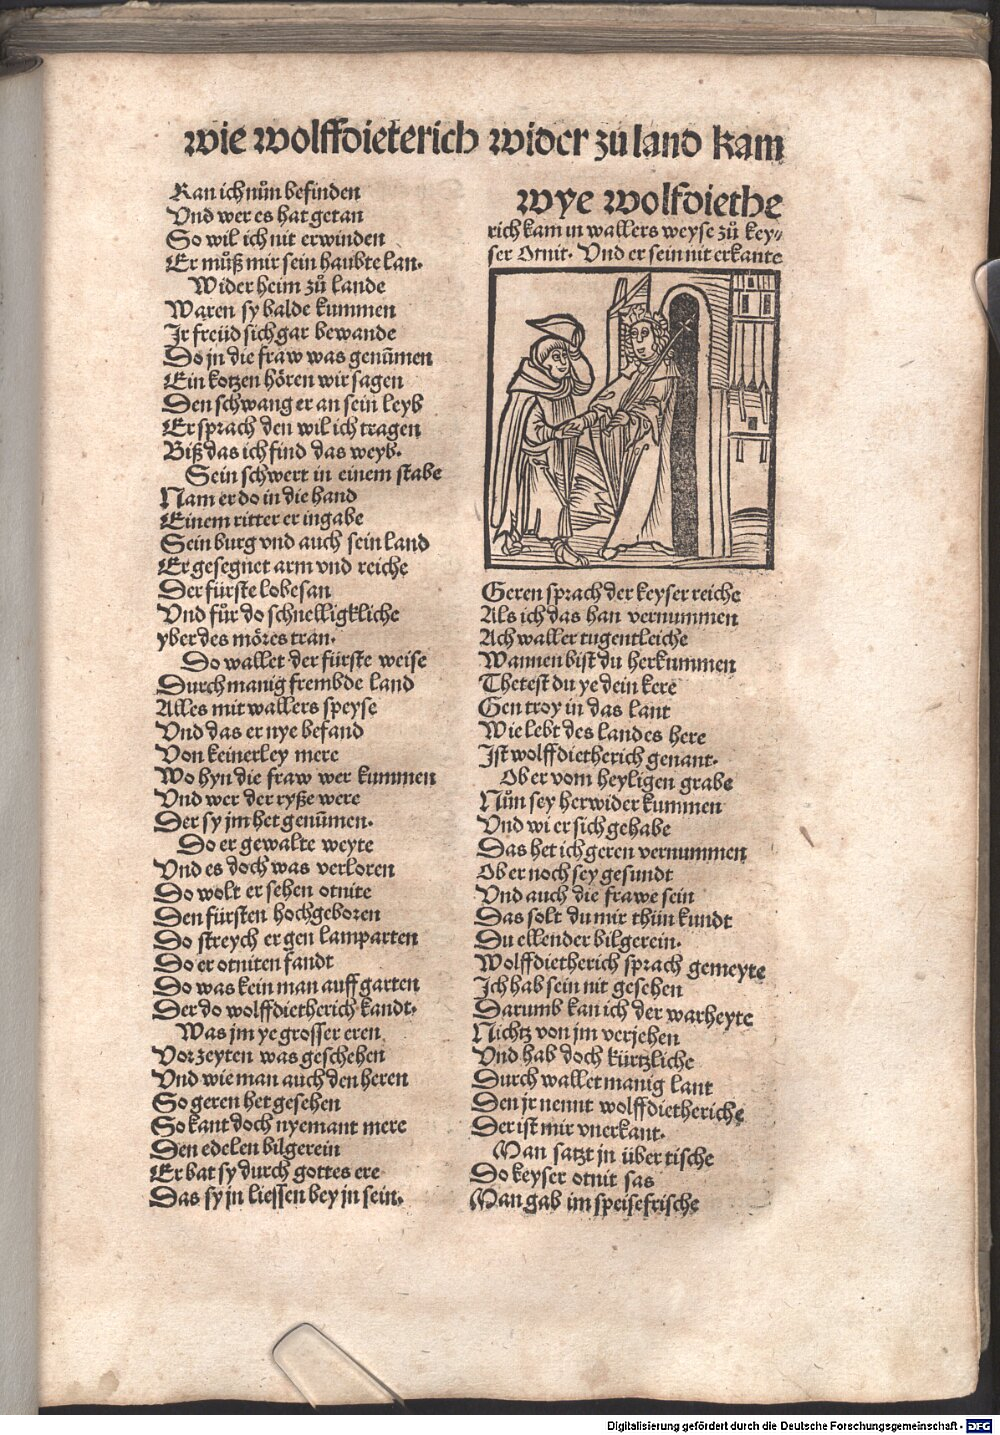 wie wolffdieterich wider zu land kam
Kan ich nůn befinden
Vnd wer es hat getan
So wil ich nit erwinden
Er můß mir sein haubte lan.
Wider heim zů lande
Waren sy balde kummen
Ir freüd sich gar bewande
Do jn die fraw was genũmen
Ein kotzen hören wir sagen
Den schwang er an sein leyb
Er sprach den wil ich tragen
Biß das ich find das weyb.
Sein schwert in einem stabe
Nam er do in die hand
Einem ritter er ingabe
Sein burg vnd auch sein land
Er gesegnet arm vnd reiche
Der fürste lobesan
Vnd fůr do schnelligkliche
yber des möres tran.
Do wallet der fürste weise
Durch manig frembde land
Alles mit wallers speyse
Vnd das er nye befand
Von keinerley mere
Wo hyn die fraw wer kummen
Vnd wer der ryße were
Der sy jm het genũmen.
Do er gewalte weyte
Vnd es doch was verloren
Do wolt er sehen otnite
Den fürsten hochgeboren
Do streych er gen lamparten
Do er otniten fandt
Do was kein man auff garten
Der do wolffdietherich kandt.
Was jm ye grosser eren
Vor zeyten was geschehen
Vnd wie man auch den heren
So geren het gesehen
So kant doch nyemant mere
Den edelen bilgerein
Er bat sy durch gottes ere
Das sy jn liessen bey jn sein.
wye wolfdiethe
rich kam in wallers weyse zů key⸗
ser Otnit. Vnd er sein nit erkante
Geren sprach der keyser reiche
Als ich das han vernummen
Ach waller tugentleiche
Wannen bist du herkummen
Thetest du ye dein kere
Gen troy in das lant
Wie lebt des landes here
Ist wolffdietherich genant.
Ob er vom heyligen grabe
Nůn sey herwider kummen
Vnd wi er sich gehabe
Das het ich geren vernummen
Ob er noch sey gesundt
Vnd auch die frawe sein
Das solt du mir thůn kundt
Du ellender bilgerein.
Wolffdietherich sprach gemeyte
Ich hab sein nit gesehen
Darumb kan ich der warheyte
Nichtz von jm verjehen
Vnd hab doch kürtzliche
Durch wallet manig lant
Den jr nennt wolffdietheriche
Der ist mir vnerkant.
Man satzt jn über tische
Do keyser otnit sas
Man gab im speise frische
Digitalisierung gefördert durch die Deutsche Forschungsgemeinschaft - DFG